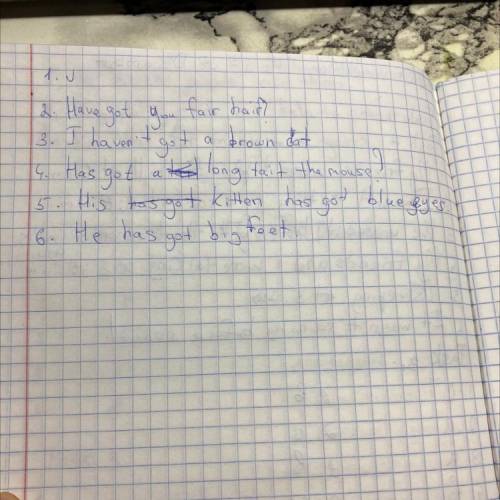 1. v
2. Have got you fair hair?
3. I haven't got a brown cat
4. Has got a long tail the mouse?
5. His has got kitten has got blue eyes
6. He has got big feet.